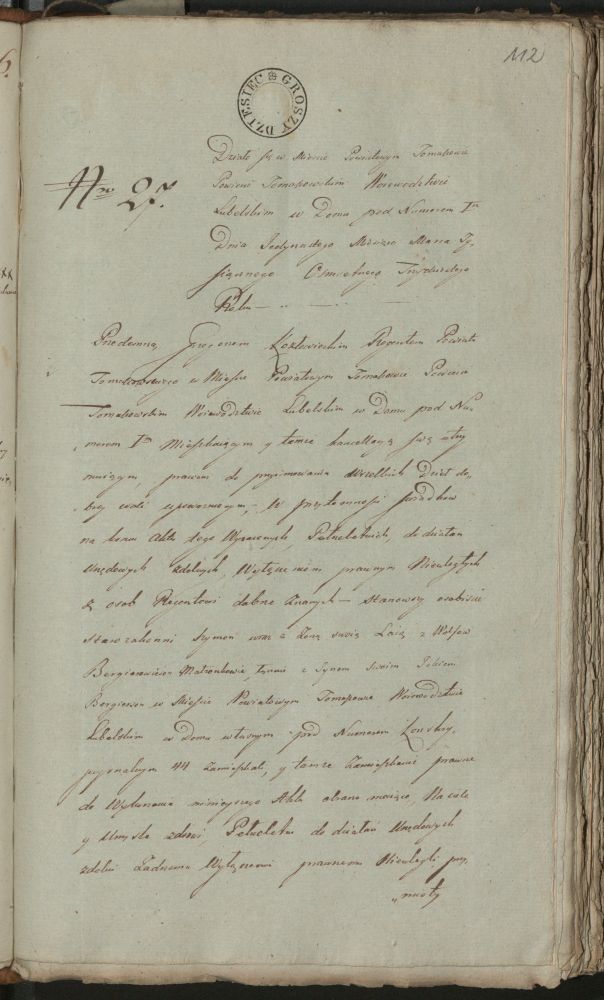 112
DZIESIEC GROSZY
Nro 27.
Działo się w Mieście Powiatowym Tomaszowie
Powiecie Tomaszowskim Woiewództwie
Lubelskim w Domu pod Numerem 1m
Dnia Jedynastego Miesiąca Marca Ty-
siącznego Osmsetnego
Roku
Przedemną Kozłowieckim Rejentem Powiatu
Tomaszowskiego w Mieście Powiatowym Tomaszowie Powiecie
Tomaszowskim Woiewództwie Lubelskim w Domu pod Nu-
merem 1m Mieszkaiącym y tamże kancellaryą swą utrzy
muiącym, prawem do przyimowania Wszelkich Dzieł do-
brey woli upoważnionym, W przytomności Swiadkow
na końcu Aktu tego Wyrażonych, Pełnoletnich, do działań
Urzędowych zdolnych, Wyłączeniom prawnym Nieuległych
z osob Reientowi dobrze Znanych — stanowszy osobiście
Starozakonni Szymon wraz z Zoną swoią Laią z Wolfow
Małżonkowie, tudzież z Synem Swoim
w Mieście Powiatowym Tomaszowie Woiewództwie
Lubelskim w Domu własnym pod Numerem Konskry-
pcyonalnym 44 Zamieszkali, y tamże Zamieszkanie prawne
do Wykonania ninieyszego Aktu obrane maiące, Na ciele
y Umyśle zdrowi Pełnoletni do działań Urzędowych
zdolni Żadnemu Wyłączeniu prawnemu Nieulegli przy